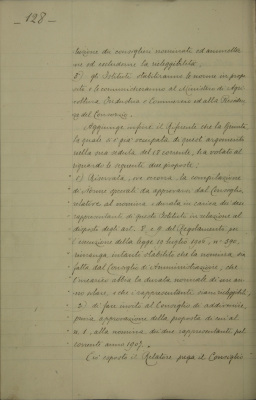 128
tazione dei consiglieri nominati ed ammetter
ne od escluderne la rieleggibilità.
5) gli Istituti stabiliranno le norme in propo
sito e le comunicheranno al Ministero di Agri
coltura Industria e Commercio ed alla Presiden
za del Consorzio.
Aggiunge infine il Riferente che la Giunta
la quale si è già occupata di questo argomento
nella sua adunata del 18 corrente, ha votato al
riguardo le seguenti due proposte:
1) Riservata, ove occorra, la compilazione
di Norme speciali da approvare dal Consiglio,
relative al nomina e durata in carica dei due
rappresentanti di questo Istituto in relazione al
disposto degli art. 8 e 9 del Regolamento per
l'esecuzione della legge 10 luglio 1905, n° 390,
rimanga intanto stabilito che la nomina sia
fatta dal Consiglio d'Amministrazione; che
l'incarico abbia la durata normale di un an
no solare, e che i rappresentanti siano rieleggibili.
2) di fare inviti al Consiglio di addivenire,
previa approvazione della proposta di cui al
n. 1, alla nomina dei due rappresentanti pel
corrente anno 1907.
Ciò esposto il Relatore prega il Consiglio